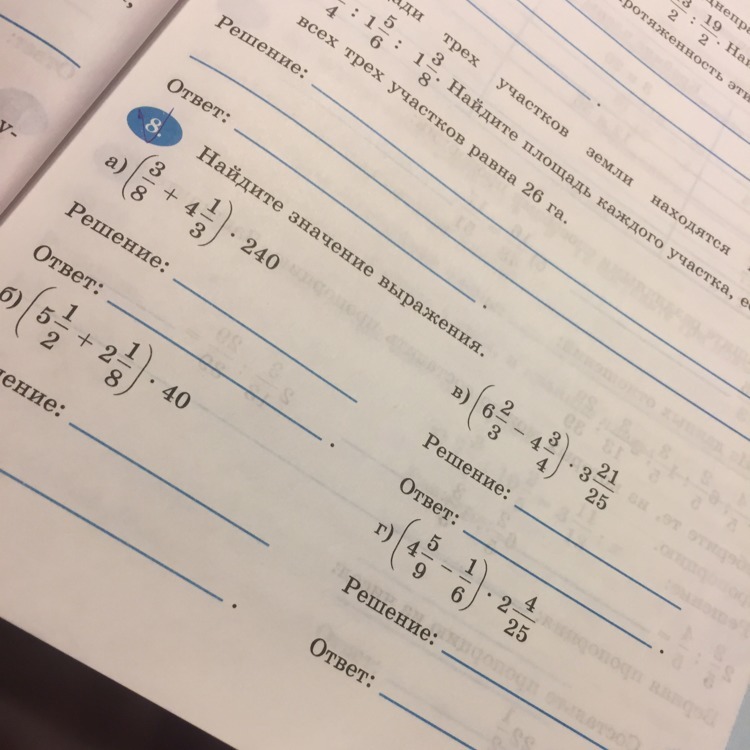 днепра
3/2 : 19/2. Най
протяженность эти
ди трех участков земли находятся
4 : 1 5/6 : 1 3/8. Найдите площадь каждого участка, ес
всех трех участков равна 26 га.
Решение:
Ответ: .
у-
8. Найдите значение выражения.
а) (3/8 + 4 1/3) · 240
Решение:
Ответ: .
б) (5 1/2 + 2 1/8) · 40
ение:
.
в) (6 2/3 − 4 3/4) · 3 21/25
Решение:
Ответ: .
г) (4 5/9 − 1/6) · 2 4/25
Решение:
Ответ: